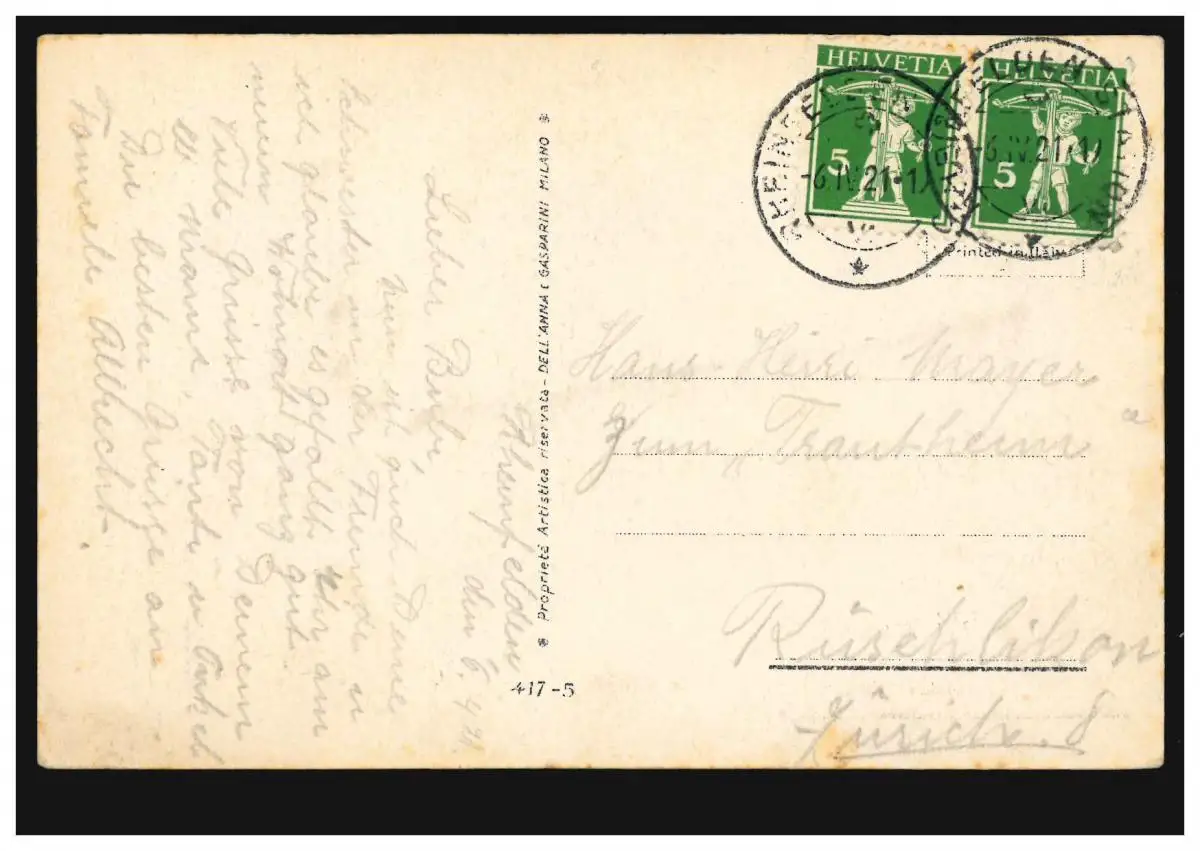 HELVETIA
5
HELVETIA
5
RHEINFELDEN STATION
-6.IV.21-1
RHEINFELDEN STATION
-6.IV.21-1
Printed in Italy
Rheinfelden
den 6.4.21.
Lieber Bubi,
Nun ist auch Deine
Schwester in der Fremde u
ich glaube es gefallt ihr am
neuen Wohnort ganz gut.
Viele Grüsse von Deinem
Tante u Onkel
Die besten Grüsse an
Familie Albrecht.
✻ Proprietà Artistica riservata - DELL'ANNA & GASPARINI MILANO ✻
417-5
Hans-Heiri Mayer
Zum „Trautheim"
Rüschlikon
Zürich. 8